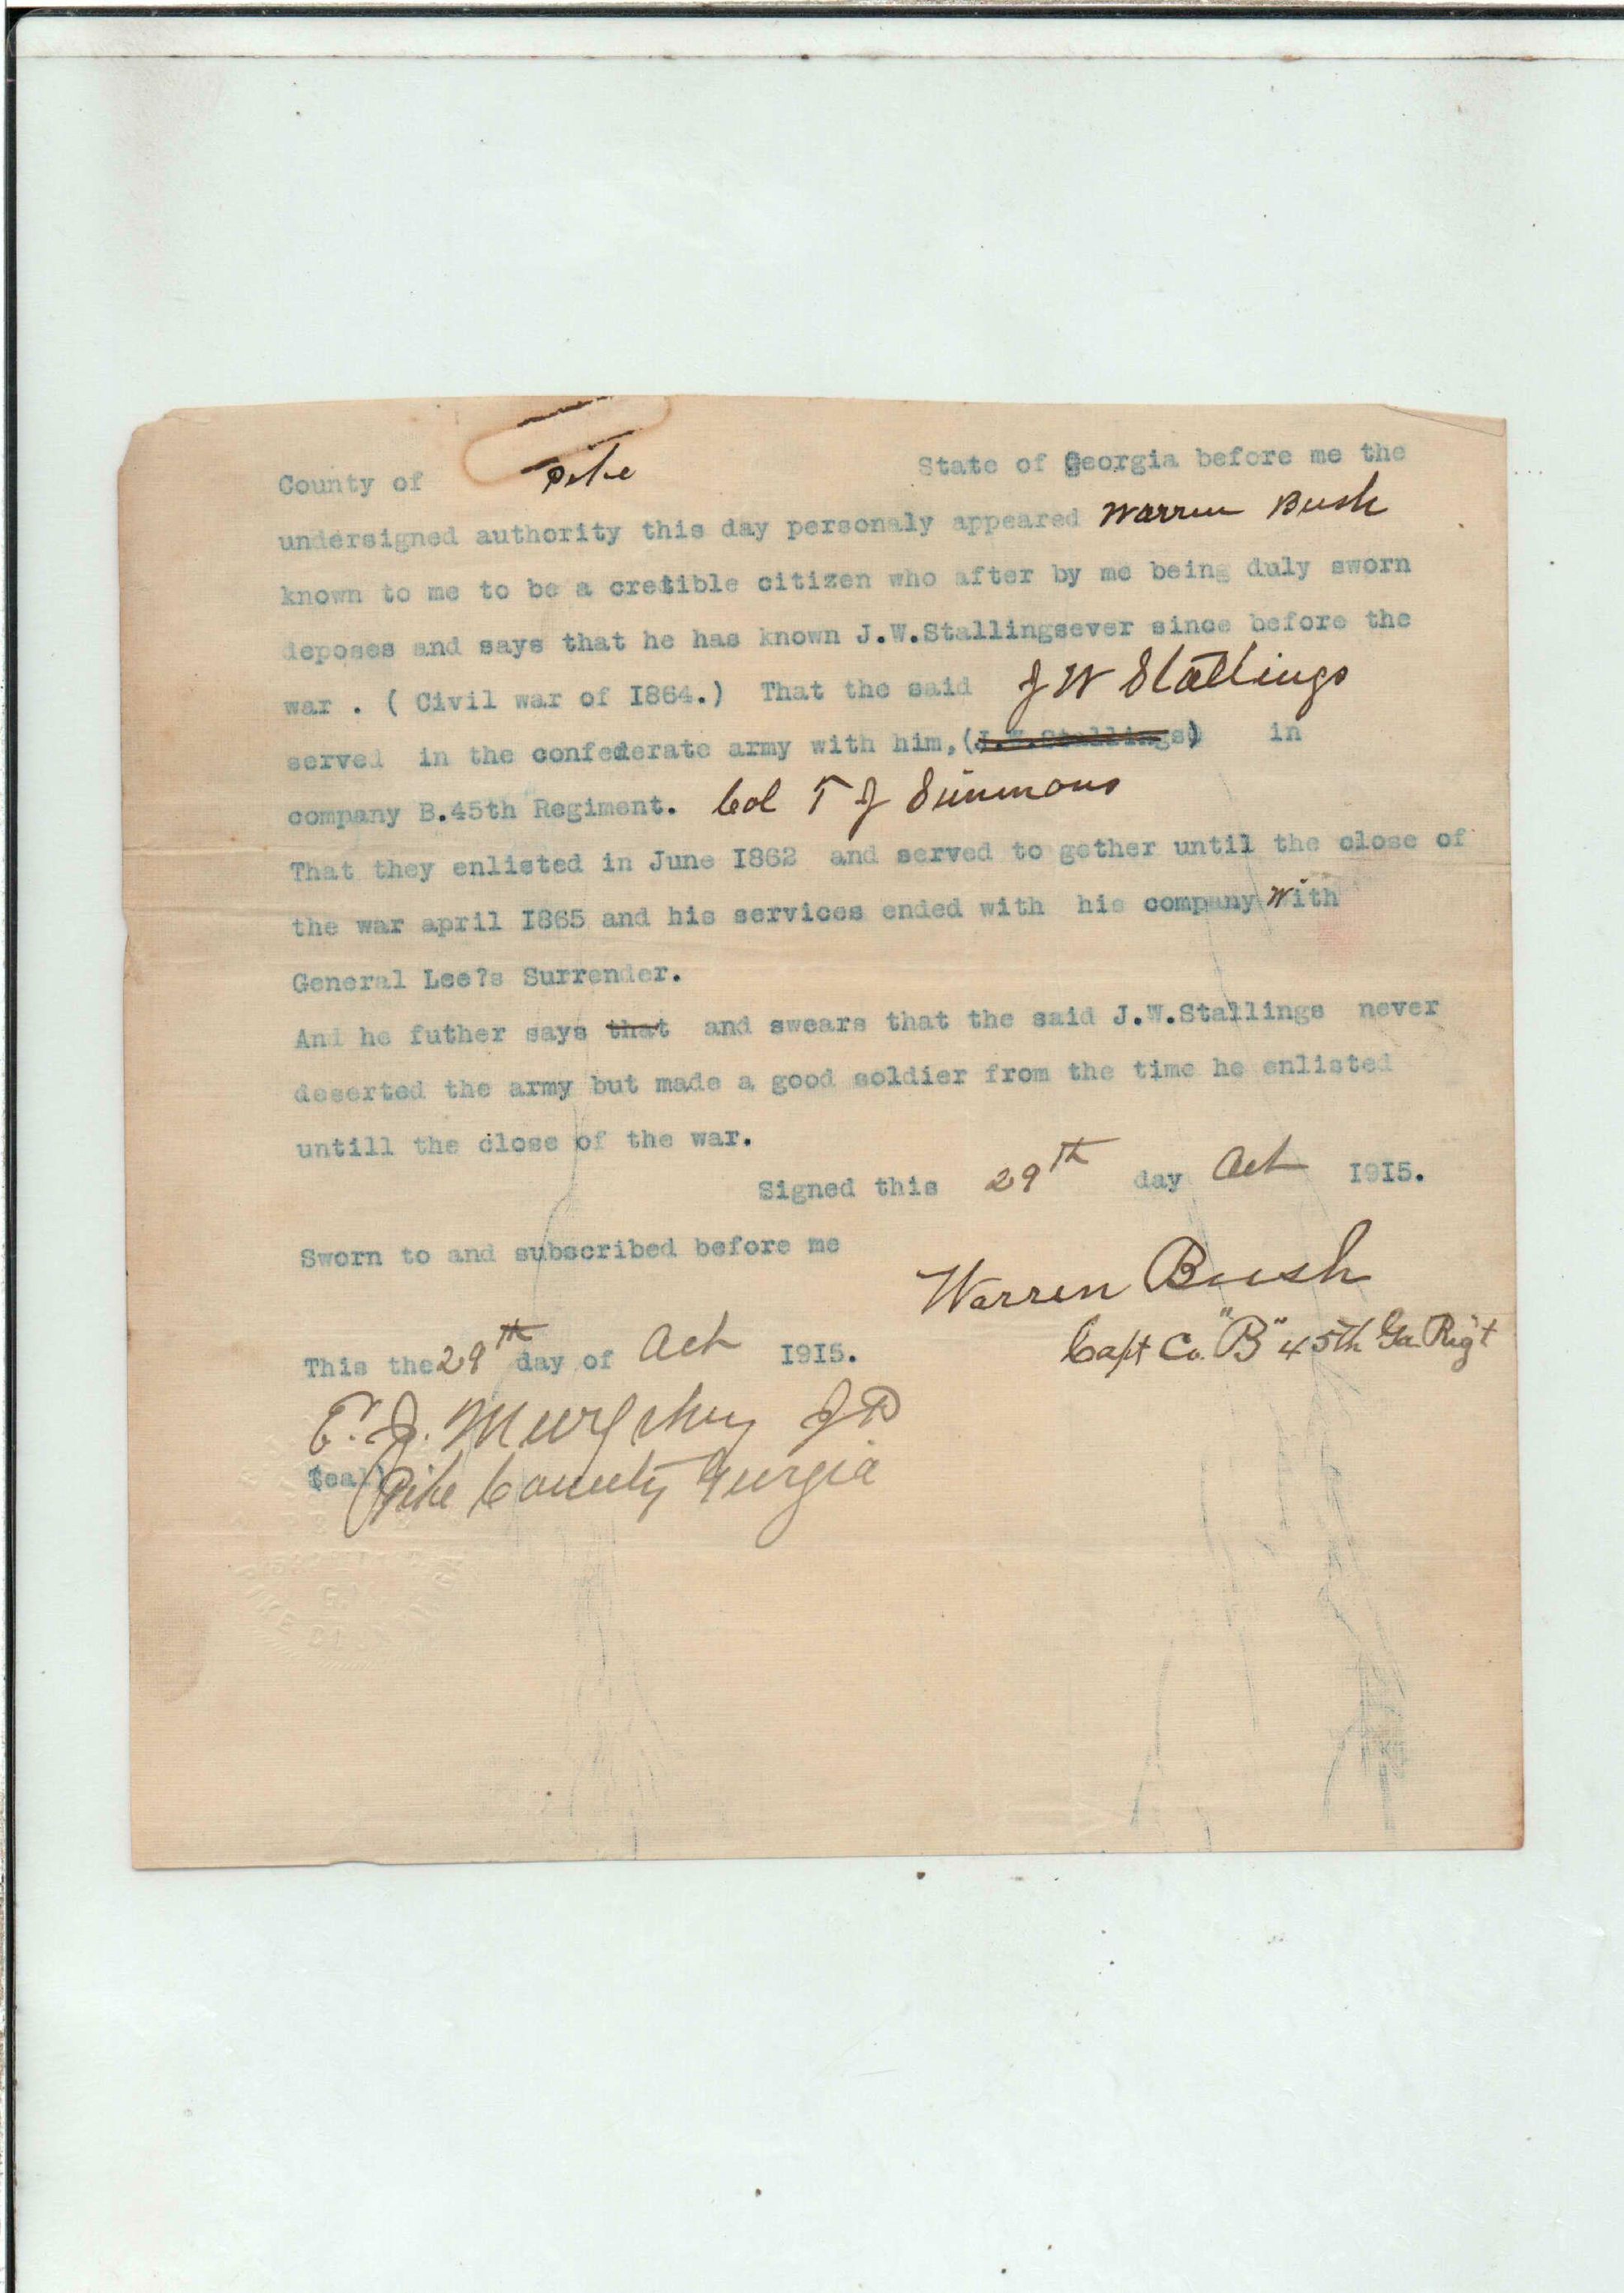 County of Pike State of Georgia before me the
undersigned authority this day personaly appeared Warren Bush
known to me to be a cretible citizen who after by me being duly sworn
deposes and says that he has known J.W.Stallingsever since before the
war . ( Civil war of I864.) That the said J W Stallings
served in the confederate army with him,(J.W.Stallings) in
company B.45th Regiment. Col T J Simmons
That they enlisted in June I862 and served to gether until the close of
the war april I865 and his services ended with his company With
General Lee?s Surrender.
And he futher says that and swears that the said J.W.Stallings never
deserted the army but made a good soldier from the time he enlisted
untill the close of the war.
Signed this 29th day Oct I9I5.
Sworn to and subscribed before me
Warren Bush
Capt Co. "B" 45th Ga Rig't
This the 29th day of Oct I9I5.
E. J. Murphy JP
(eal) Pike County Georgia
PIKE
GA